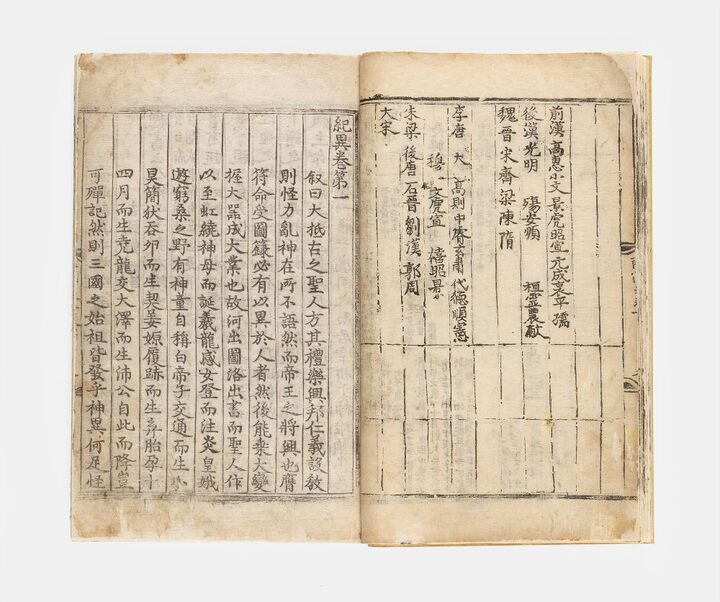 前漢 高惠小文景虎昭宣元成哀平孺
後漢光明 殤安順 桓靈農献
魏晉宋齊梁陳隋
李唐 太高則中睿玄肅代德順憲
穆 文虎宣 僖昭景
朱梁 後唐 石晉 劉漢 郭周
大宋
紀異卷第一
叙曰大抵古之聖人方其禮樂興邦仁義設敎
則怪力亂神在所不語然而帝王之將興也膺
符命受圖籙必有以異於人者然後能乘大變
握大器成大業也故河出圖洛出書而聖人作
以至虹繞神母而誕羲龍感女登而注炎皇娥
遊窮桑之野有神童自稱白帝子交通而生小
昊簡狄吞卵而生契姜嫄履跡而生弃胎孕十
四月而生堯龍交大澤而生沛公自此而降豈
可殫記然則三國之始祖皆發乎神異何足怪